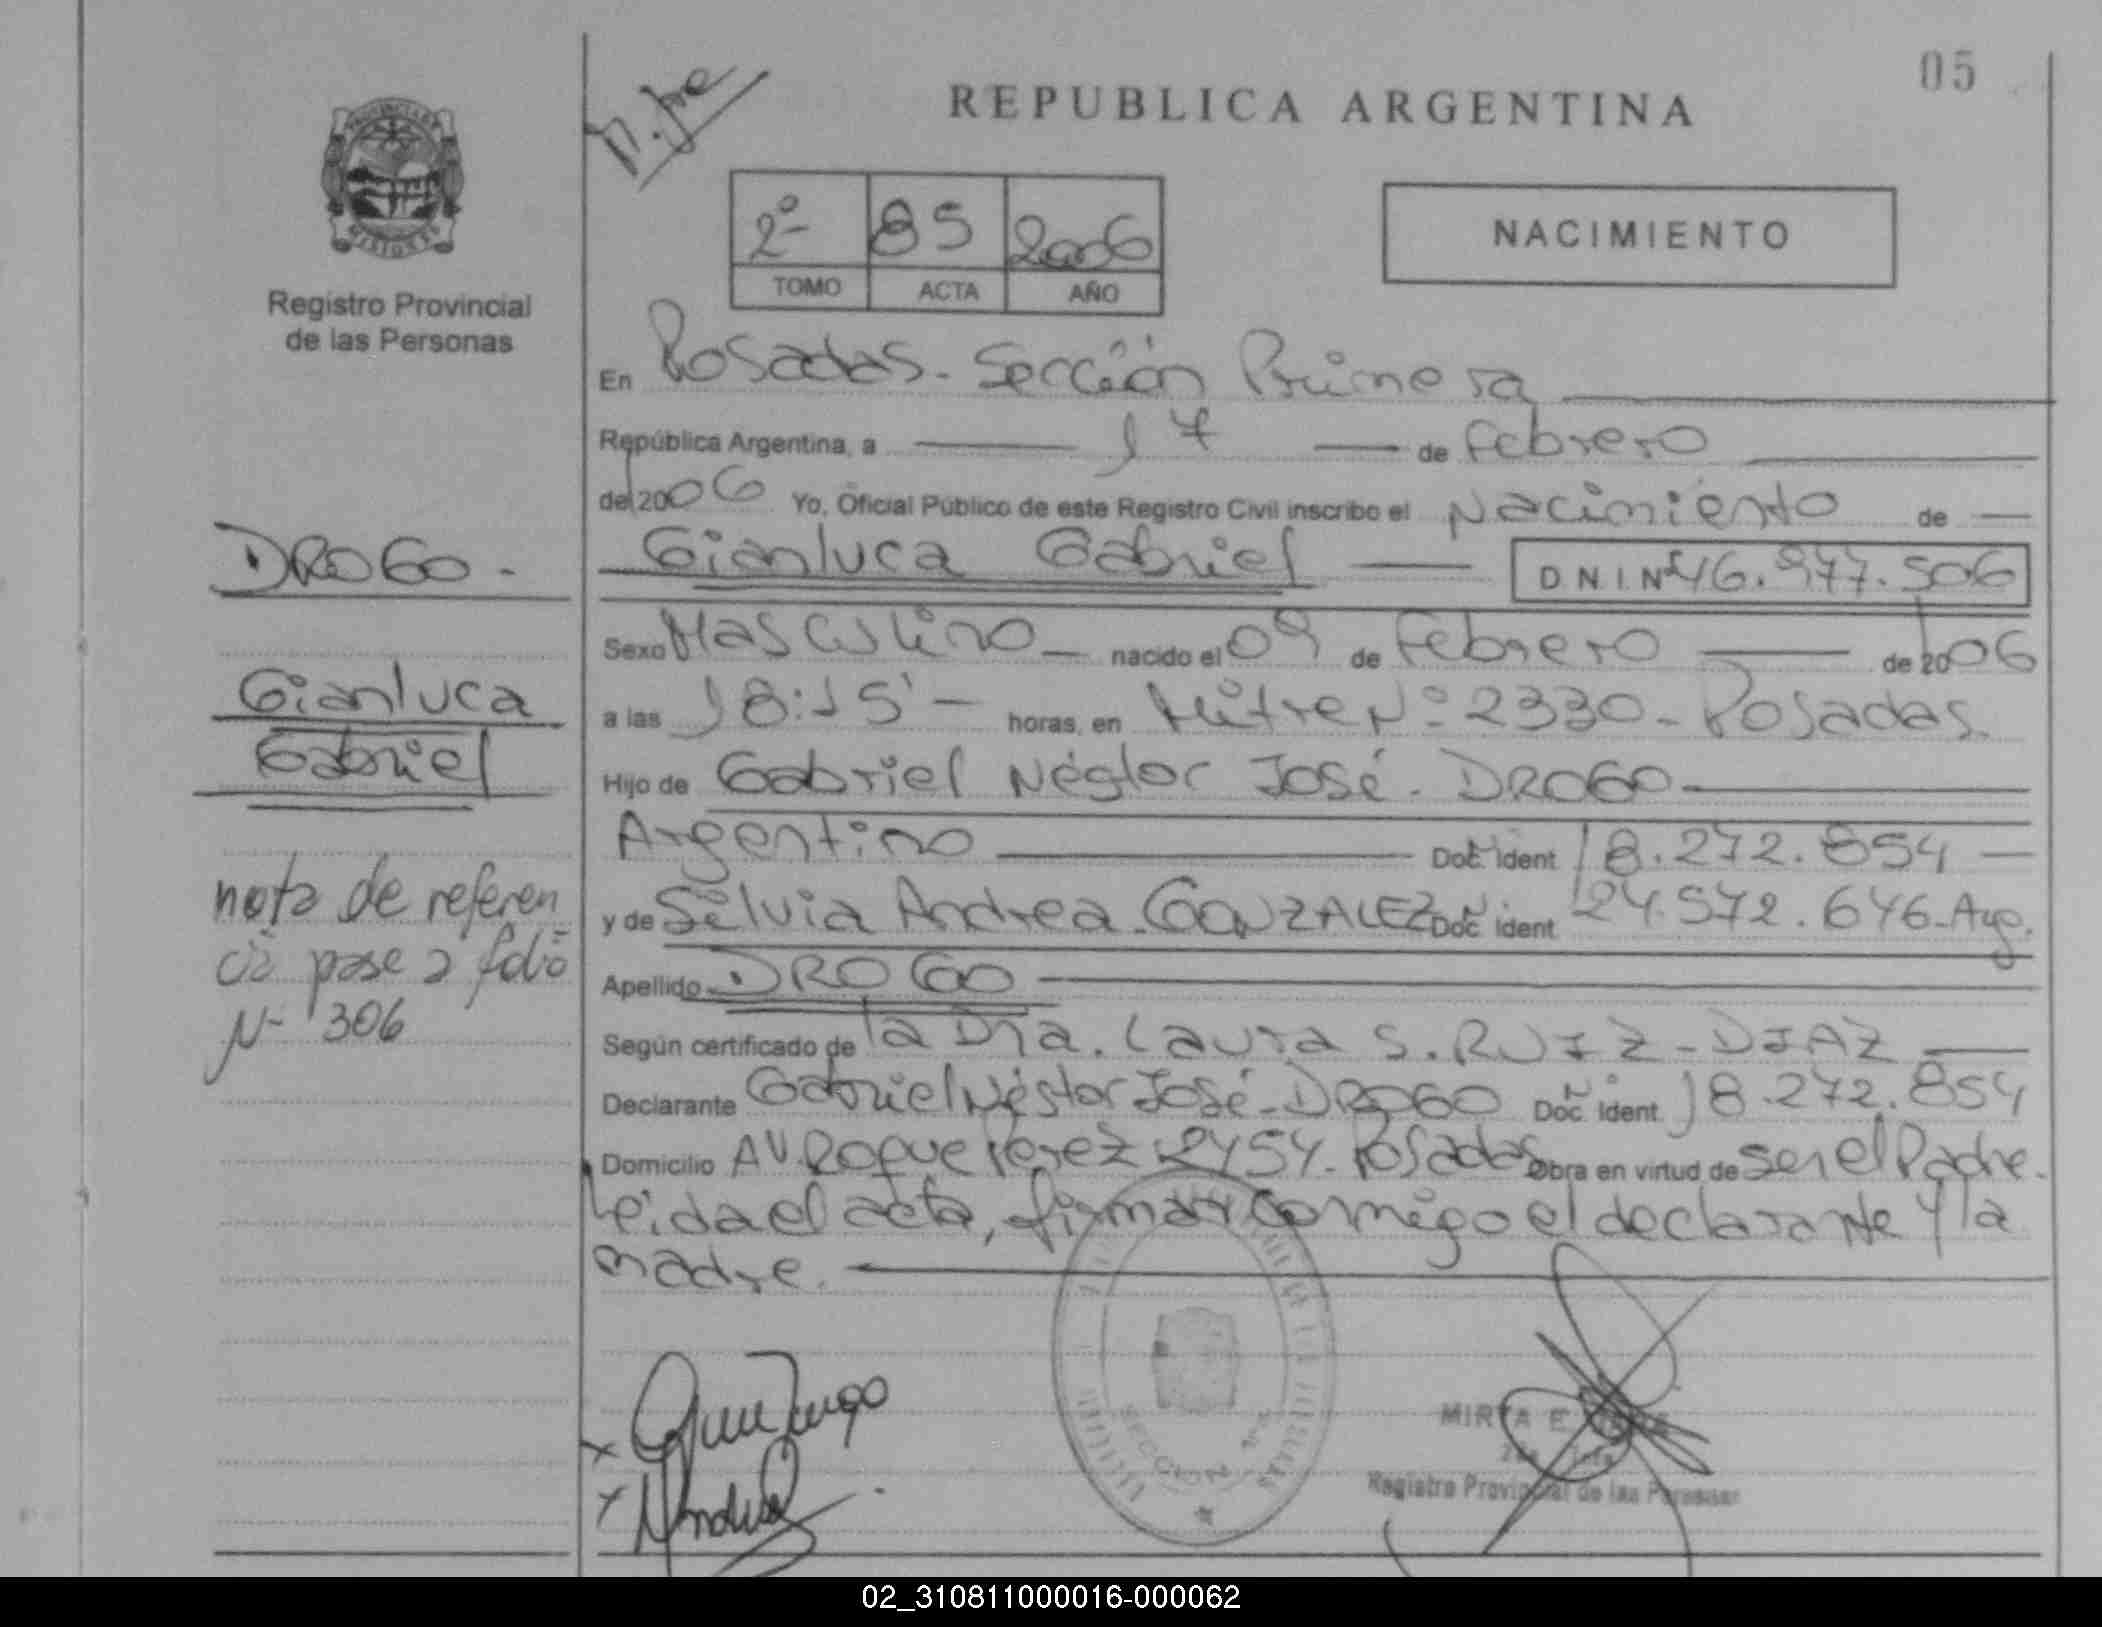 05
N. Jre
REPUBLICA ARGENTINA
PROVINCIA DE
MISIONES
Registro Provincial
de las Personas
2º 85 2006
TOMO ACTA AÑO
NACIMIENTO
En Posadas - Sección Primera
República Argentina, a 17 de Febrero
del 2006 Yo, Oficial Público de este Registro Civil inscribo el Nacimiento de
Gianluca Gabriel D.N.I. Nº 46.977.506
Sexo Masculino nacido el 09 de Febrero de 2006
a las 18:15' horas, en Mitre Nº 2330 - Posadas.
Hijo de Gabriel Néstor José - DROGO
Argentino Doc. Ident. 18.272.854
y de Silvia Andrea - GONZALEZ Doc. Ident. 24.572.646 - Arg.
Apellido DROGO
Según certificado de la Dra. Laura S. RUIZ - DIAZ
Declarante Gabriel Néstor José - DROGO Doc. Ident. 18.272.854
Domicilio AV. Roque Perez 2454 - Posadas Obra en virtud de ser el Padre.
Leida el acta, firman conmigo el declarante y la
madre.
DROGO -
Gianluca
Gabriel
nota de referen
cia pase a folio
Nº 306
SECCION
MIRTA E
Registro Provincial de las Personas
02_310811000016-000062